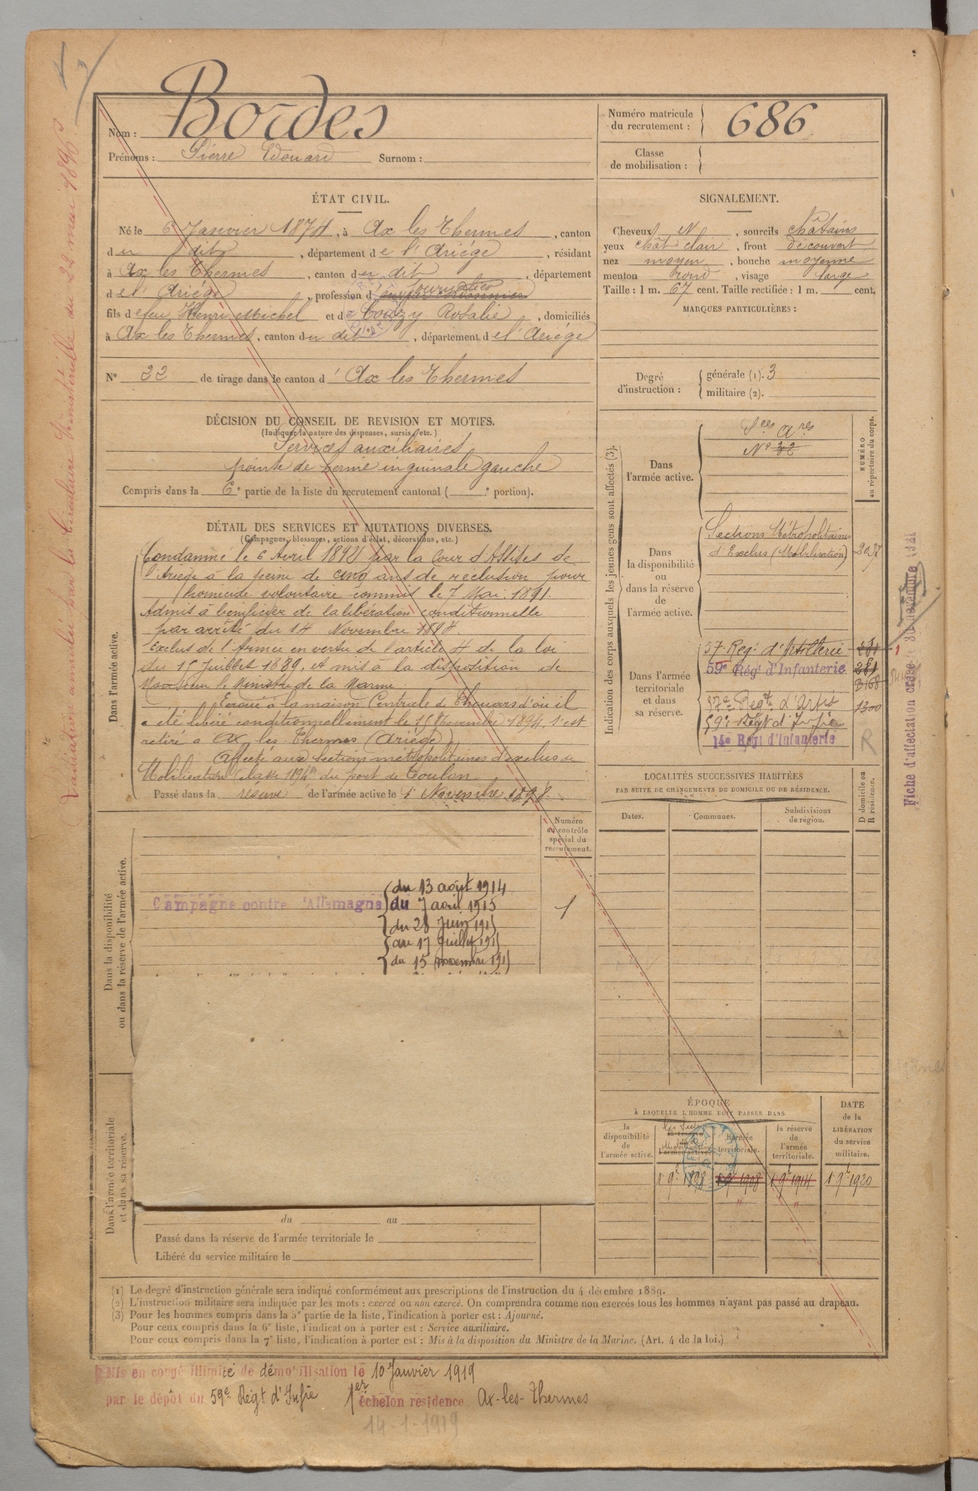 Nom : Bordes
Prénoms : Pierre Edouard Surnom :
Numéro matricule du recrutement : 686
Classe de mobilisation :
ÉTAT CIVIL.
Né le 6 Janvier 1874, à Ax les Thermes, canton
d u dit, département d e l'Ariége, résidant
à Ax les Thermes, canton d u dit, département
d e l'Ariége, profession d
fils d e feu Henri Michel et d e Rosalie, domiciliés
à Ax les Thermes, canton d u dit, département d e l'Ariége
N° 22 de tirage dans le canton d' Ax les Thermes
SIGNALEMENT.
Cheveux N, sourcils châtains
yeux chât clair, front découvert
nez moyen, bouche moyenne
menton rond, visage large
Taille : 1 m. 67 cent. Taille rectifiée : 1 m. cent.
MARQUES PARTICULIÈRES :
Degré d'instruction : générale (1). 3
militaire (2).
DÉCISION DU CONSEIL DE REVISION ET MOTIFS.
(Indiquer la nature des dispenses, sursis, etc.)
Services auxiliaires
pointe de hernie inguinale gauche
Compris dans la 6e partie de la liste du recrutement cantonal ( e portion).
DÉTAIL DES SERVICES ET MUTATIONS DIVERSES.
(Campagnes, blessures, actions d'éclat, décorations, etc.)
Dans l'armée active.
Condamné le 6 Avril 1892 par la Cour d'Assises de
l'Ariège à la peine de cinq ans de reclusion pour
homicide volontaire commis le 7 Mai 1891.
Admis à bénéficier de la libération conditionnelle
par arrêté du 14 Novembre 1894
Exclus de l'Armée en vertu de l'article 4 de la loi
du 15 Juillet 1889, et mis à la disposition de
Monsieur le Ministre de la Marine
Ecroué à la maison Centrale de Thouars d'où il
a été libéré conditionnellement le 15 1894, s'est
retiré à Ax les Thermes (Ariége)
Affecté aux sections métropolitaines d'exclus
Mobilisation classe 1894 du port de Toulon
Passé dans la réserve de l'armée active le 1r Novembre 1898
Numéro au contrôle spécial du recrutement.
1
Dans la disponibilité ou dans la réserve de l'armée active.
Campagne contre l'Allemagne
du 13 août 1914
du 7 avril 1915
du 28 Juin 191
au 17 Juillet 191
du 15 novembre 191
Dans l'armée territoriale et dans sa réserve.
du au
Passé dans la réserve de l'armée territoriale le
Libéré du service militaire le
Indication des corps auxquels les jeunes gens sont affectés (3).
NUMÉRO au répertoire du corps.
Dans l'armée active.
Sces Ares
N° 32
Dans la disponibilité ou dans la réserve de l'armée active.
Sections Métropolitaines
d'Exclus (Mobilisation)
Dans l'armée territoriale et dans sa réserve.
57e Reg. d'Artillerie
59e Reg d'Infanterie
57e Regt d'Artie
1300
59e Regt d'Infie
14e Regt d'Infanterie
R
LOCALITÉS SUCCESSIVES HABITÉES
PAR SUITE DE CHANGEMENTS DU DOMICILE OU DE RÉSIDENCE.
D domicile ou R résidence.
Dates. Communes. Subdivisions de région.
ÉPOQUE
À LAQUELLE L'HOMME DOIT PASSER DANS
la disponibilité de l'armée active.
l'armée territoriale.
la réserve de l'armée territoriale.
DATE de la LIBÉRATION du service militaire.
1r 9e 1898 1r 9e 1908 1r 9e 1914 1r 9e 1920
(1) Le degré d'instruction générale sera indiqué conformément aux prescriptions de l'instruction du 4 décembre 1889.
(2) L'instruction militaire sera indiquée par les mots : exercé ou non exercé. On comprendra comme non exercés tous les hommes n'ayant pas passé au drapeau.
(3) Pour les hommes compris dans la 5e partie de la liste, l'indication à porter est : Ajourné.
Pour ceux compris dans la 6e liste, l'indication à porter est : Service auxiliaire.
Pour ceux compris dans la 7e liste, l'indication à porter est : Mis à la disposition du Ministre de la Marine. (Art. 4 de la loi.)
Mis en congé illimité de démobilisation le 10 Janvier 1919
par le dépôt du 59e Régt d'Infie 1er échelon résidence Ax-les-Thermes
14-1-1919